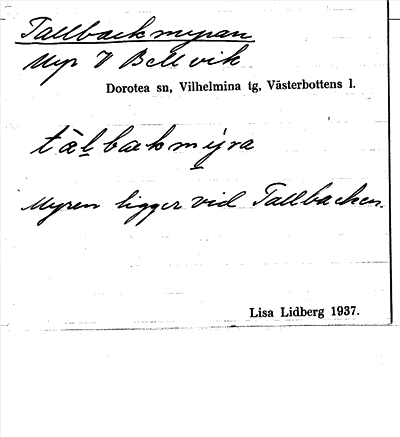 Tallbackmyran
Myr V Bellvik
Dorotea sn, Vilhelmina tg, Västerbottens l.
tàḷbackmýra
Myren ligger vid Tallbacken.
Lisa Lidberg 1937.